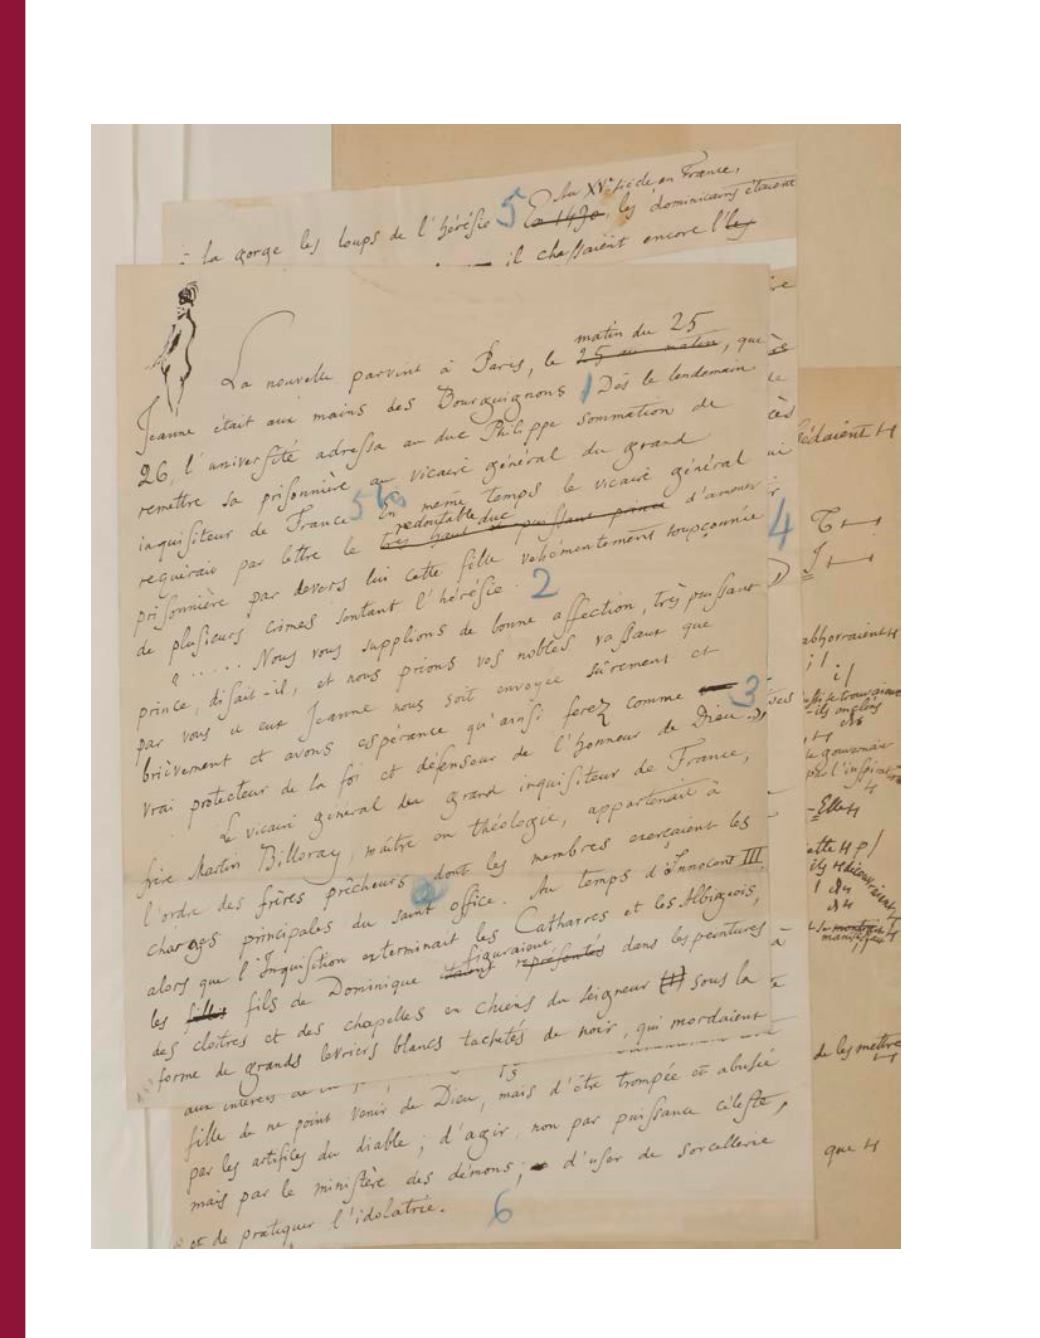 Au XVe siècle en France,
la gorge les loups de l'hérésie 5 En 1430, les dominicains étaient
il chassaient encore l'les
matin du 25
La nouvelle parvint à Paris, le 25 au matin, que
Jeanne était aux mains des Bourguignons 1 Dès le lendemain
26, l'université adressa au duc Philippe sommation de
remettre sa prisonnière au vicaire général du grand
inquisiteur de France 5 bis En même temps le vicaire général
redoutable duc
requérait par lettre le très haut et puissant prince d'amener
prisonnière par devers lui cette fille véhémentement soupçonnée
de plusieurs crimes sentant l'hérésie. 2
« .... Nous vous supplions de bonne affection, très puissant
prince, disait-il, et nous prions vos nobles vassaux que
par vous et eux Jeanne nous soit envoyée sûrement et
brièvement et avons espérance qu'ainsi ferez comme 3
vrai protecteur de la foi et défenseur de l'honneur de Dieu. »
Le vicaire général du grand inquisiteur de France,
frère Martin Billoray, maître en théologie, appartenait à
l'ordre des frères prêcheurs dont les membres exerçaient les
charges principales du saint office. Au temps d'Innocent III,
alors que l'Inquisition exterminait les Cathares et les Albigeois,
figuraient
les filles fils de Dominique étaient représentés dans les peintures
des cloîtres et des chapelles en chiens du Seigneur (1) sous la
forme de grands levriers blancs tachetés de noir, qui mordaient
aux intérêts
fille de ne point venir de Dieu, mais d'être trompée et abusée
par les artifices du diable ; d'agir, non par puissance céleste,
mais par le ministère des démons ; d'user de sorcellerie
et de pratiquer l'idolatrie. 6
4
cédaient H
abhorraient H
ils anglais
le gouvernait
par l'inspiration
- Elle H
ils H découvraient
de les mettre
que H